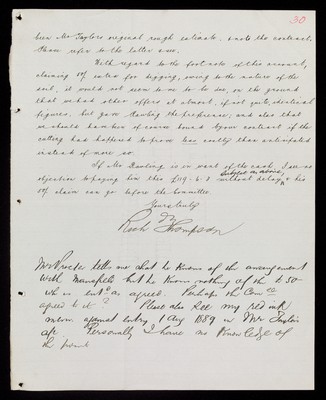 30
been Mr Taylors original rough estimate. & note the contract.
Please refer to the latter one.
With regard to the foot note of this account,
claiming 50£ extra for digging, owing to the nature of the
soil, it would not seem to me to be due, on the ground
that we had other offers at almost, if not quite identical
figures, but gave Hawling the preference; and also that
we should have been of course bound by our contract if the
cutting had happened to prove less costly than anticipated
instead of more so.
If Mr Hawling is in want of the cash, I see no
objection to paying him the £119. 6. 3 without delay, & his
subject as above,
50£ claim can go before the Committee
Yours truly
Rich Thompson
Mr Procter tells me that he knows of the arrangement
with Mansfield but he knows nothing of the £50
wh is entd as agreed. Perhaps the Comee
agreed to it? Please also see my red ink
on against entry 1 Aug 1889 in Mr Taylors
a/c Personally I have no knowledge of
the